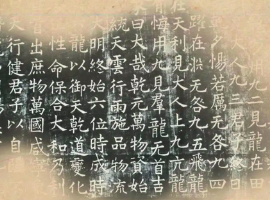 用九二見龍在田
人九三君子終日
夕惕若厲无咎九四
躍在淵无咎九五飛龍
在天利見大人上九亢龍
有悔用九見羣龍无首吉
曰大哉乾元萬物資始
統天雲行雨施品物流
大明終始六位時成時
龍以御天乾道變化
性命保合大和乃利
首出庶物萬國咸
天行健君子以自